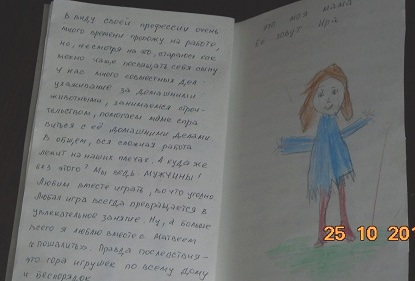 В виду своей профессии очень
много времени провожу на работе,
но, несмотря на это, стараюсь как
можно чаще посвящать себя сыну
У нас много совместных дел:
ухаживание за домашними
животными, занимаемся строи-
тельством, помогаем маме спра
виться с её домашними делами.
В общем, вся сложная работа
лежит на наших плечах. А куда же
без этого? Мы ведь МУЖЧИНЫ!
Любим вместе играть, во что угодно
Любая игра всегда превращается в
увлекательное занятие. Ну, а больше
всего я люблю вместе с Матвеем
«пошалить». Правда последствия-
это гора игрушек по всему дому
и беспорядок
это моя мама
Её зовут Ира
25 10 201